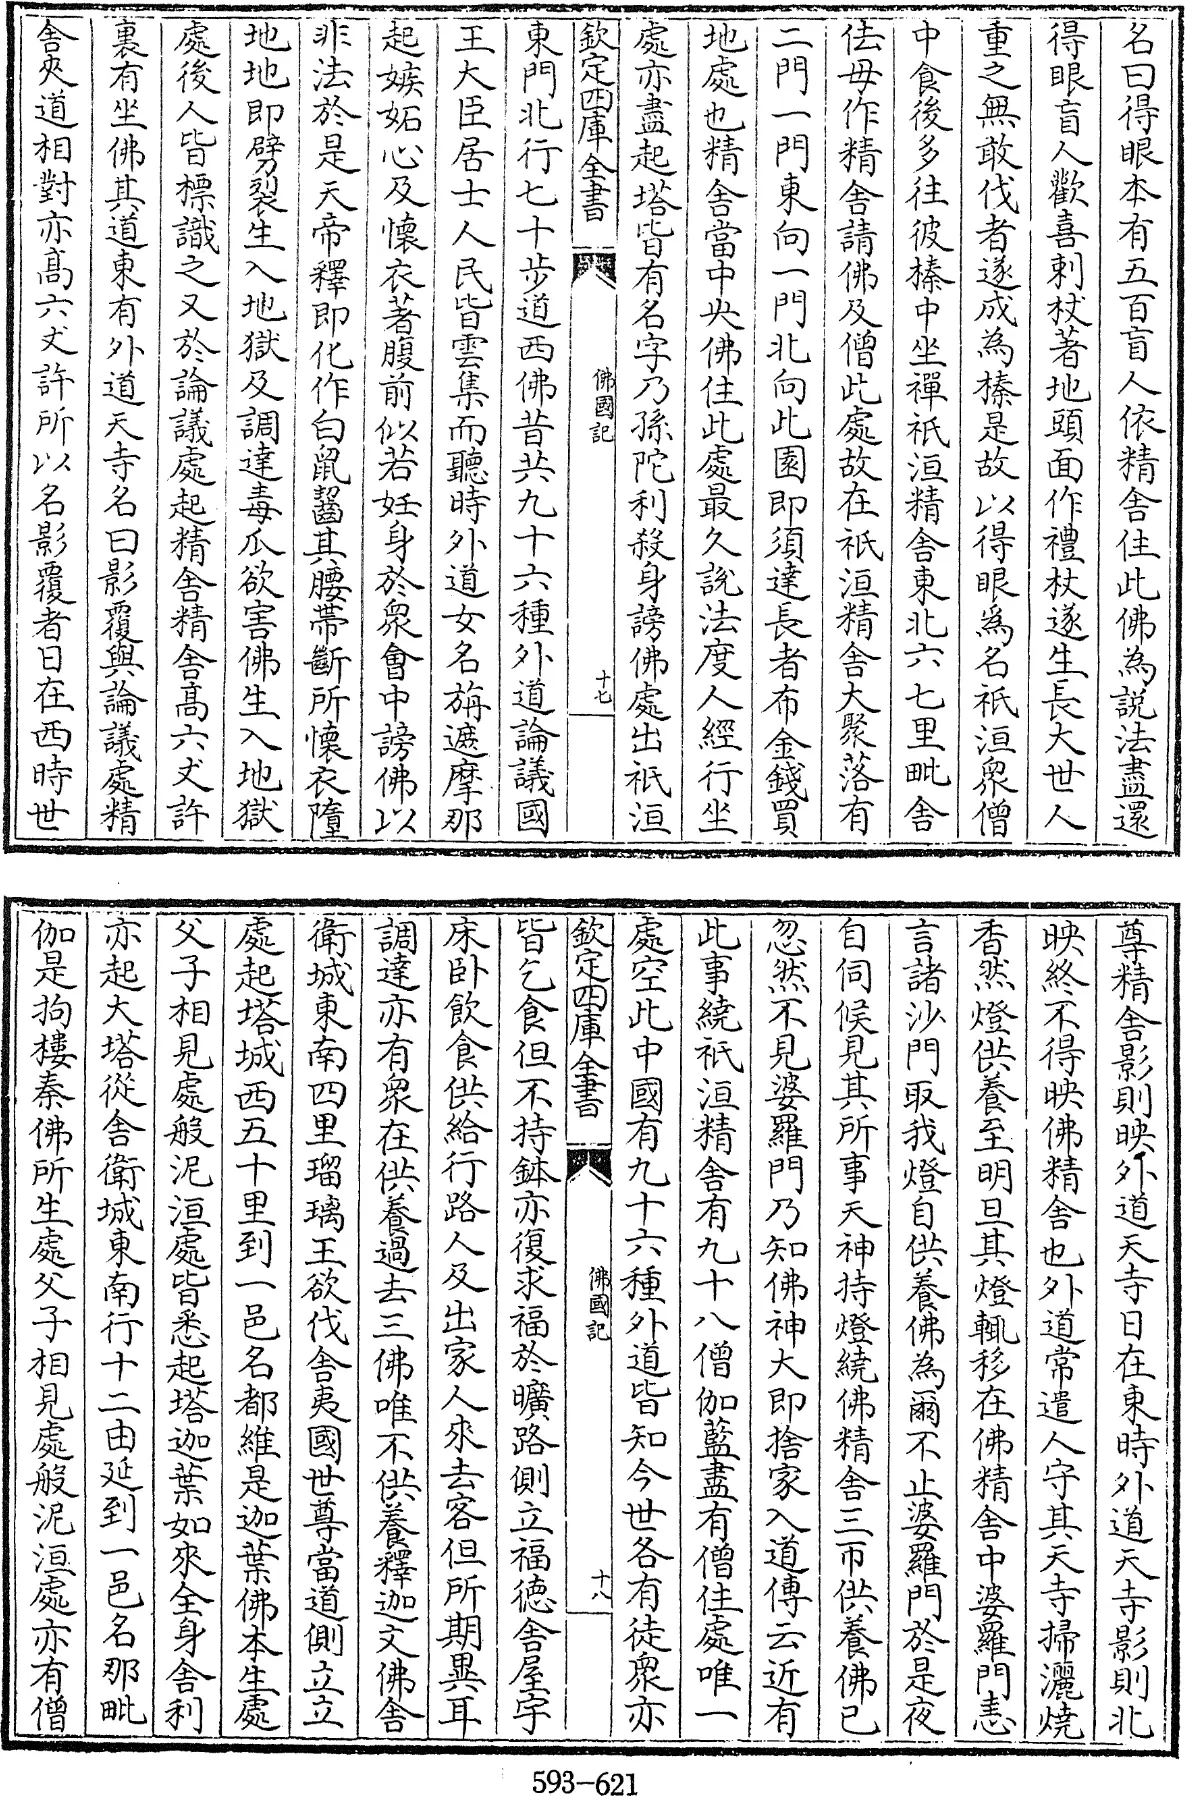 名曰得眼本有五百盲人依精舍住此佛為説法盡還
得眼盲人歡喜刺杖著地頭面作禮杖遂生長大世人
重之無敢伐者遂成為榛是故以得眼爲名祇洹衆僧
中食後多往彼榛中坐禪祇洹精舍東北六七里毗舍
佉母作精舍請佛及僧此處故在祇洹精舍大聚落有
二門一門東向一門北向此園即須達長者布金錢買
地處也精舍當中央佛住此處最久説法度人經行坐
處亦盡起塔皆有名字乃孫陀利殺身謗佛處出祇洹
欽定四庫全書
佛國記
十七
東門北行七十步道西佛昔共九十六種外道論議國
王大臣居士人民皆雲集而聽時外道女名旃遮摩那
起嫉妬心及懷衣著腹前似若妊身於衆會中謗佛以
非法於是天帝釋即化作白鼠齧其腰帶斷所懷衣墮
地地即劈裂生入地獄及調達毒爪欲害佛生入地獄
處後人皆標識之又於論議處起精舍精舍高六丈許
裏有坐佛其道東有外道天寺名曰影覆與論議處精
舍夾道相對亦高六丈許所以名影覆者日在西時世
尊精舍影則映外道天寺日在東時外道天寺影則北
映終不得映佛精舍也外道常遣人守其天寺掃灑燒
香然燈供養至明旦其燈輒移在佛精舍中婆羅門恚
言諸沙門取我燈自供養佛為爾不止婆羅門於是夜
自伺候見其所事天神持燈繞佛精舍三帀供養佛已
忽然不見婆羅門乃知佛神大即捨家入道傳云近有
此事繞祇洹精舍有九十八僧伽藍盡有僧住處唯一
處空此中國有九十六種外道皆知今世各有徒衆亦
欽定四庫全書
佛國記
十八
皆乞食但不持鉢亦復求福於曠路側立福德舍屋宇
床卧飲食供給行路人及出家人來去客但所期異耳
調達亦有衆在供養過去三佛唯不供養釋迦文佛舍
衛城東南四里瑠璃王欲伐舍夷國世尊當道側立立
處起塔城西五十里到一邑名都維是迦葉佛本生處
父子相見處般泥洹處皆悉起塔迦葉如來全身舍利
亦起大塔從舍衛城東南行十二由延到一邑名那毗
伽是拘樓秦佛所生處父子相見處般泥洹處亦有僧
593-621